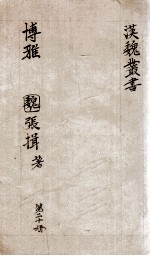 漢魏叢書
博雅 魏張揖著
第二十冊